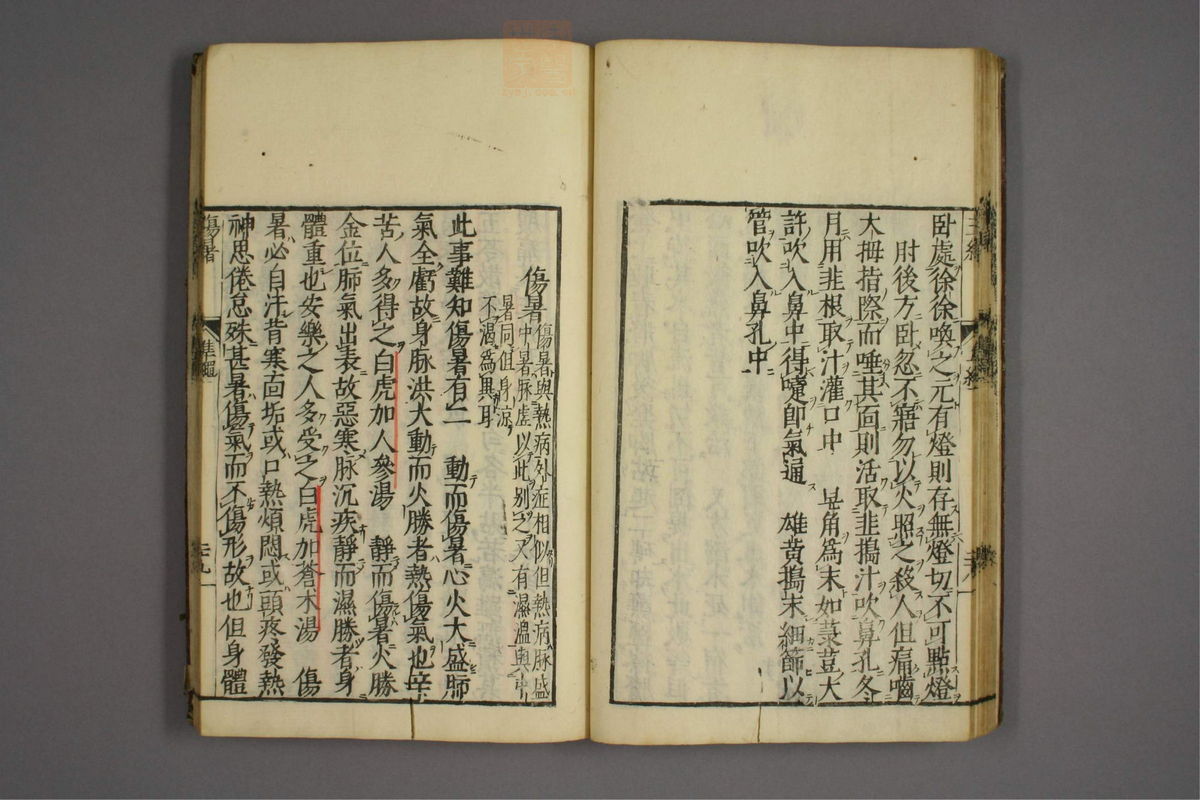 卧處徐徐喚之元有燈則存無燈切不可點燈
肘後方卧忽不寤勿以火照之殺人但痛嚙
大拇指際而唾其面則活取韭搗汁吹鼻孔冬
月用韭根取汁灌口中 犀角爲末如菉荳大
許吹入鼻中得嚏卽氣通 雄黃搗末細篩以
管吹入鼻孔中
傷暑
傷暑與熱病外症相似但熱病脉盛
中暑脉虚以此别之又有濕溫與中
暑同但身凉
不渴爲異耳
此事難知傷暑有二 動而傷暑心火大盛肺
氣全虧故身脉洪大動而火勝者熱傷氣也辛
苦人多得之白虎加人參湯 靜而傷暑火勝
金位肺氣出表故惡寒脉沉疾靜而濕勝者身
體重也安樂之人多受之白虎加蒼术湯 傷
暑必自汗背寒面垢或口熱煩悶或頭疼發熱
神思倦怠殊甚暑傷氣而不傷形故也但身體
傷暑